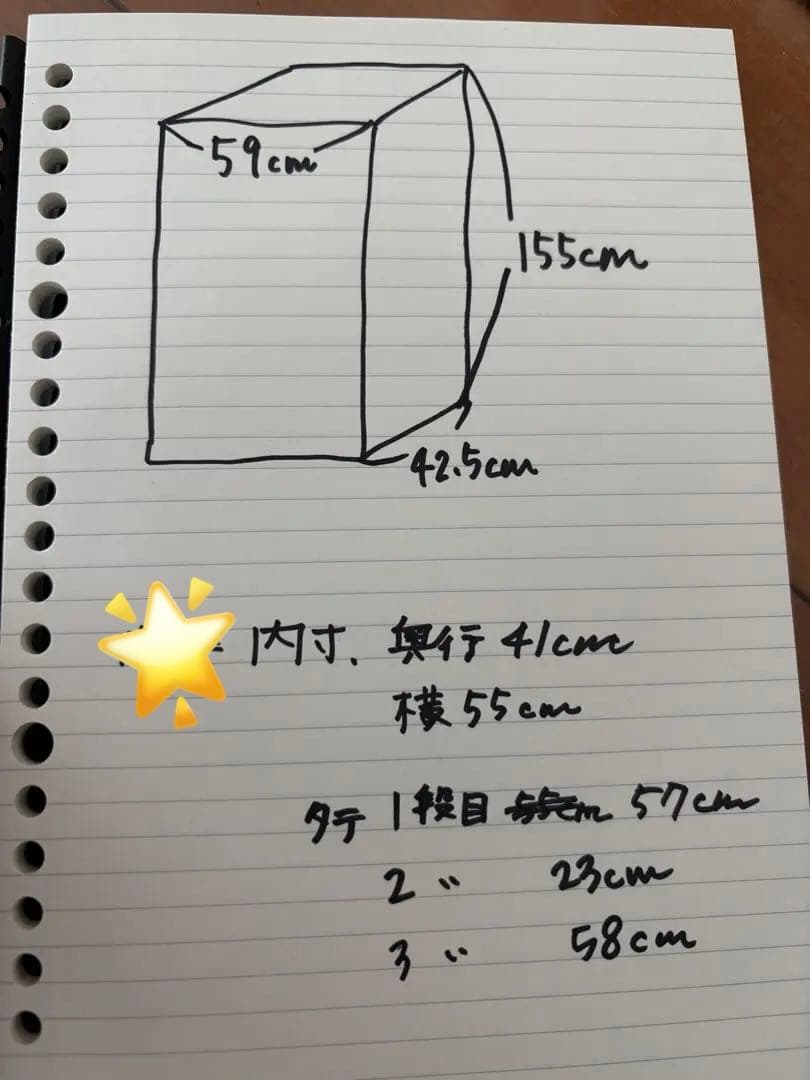 59cm
155cm
42.5cm
内寸、奥行 41cm
横 55cm
タテ 1段目 57cm
2 〃 23cm
3 〃 58cm